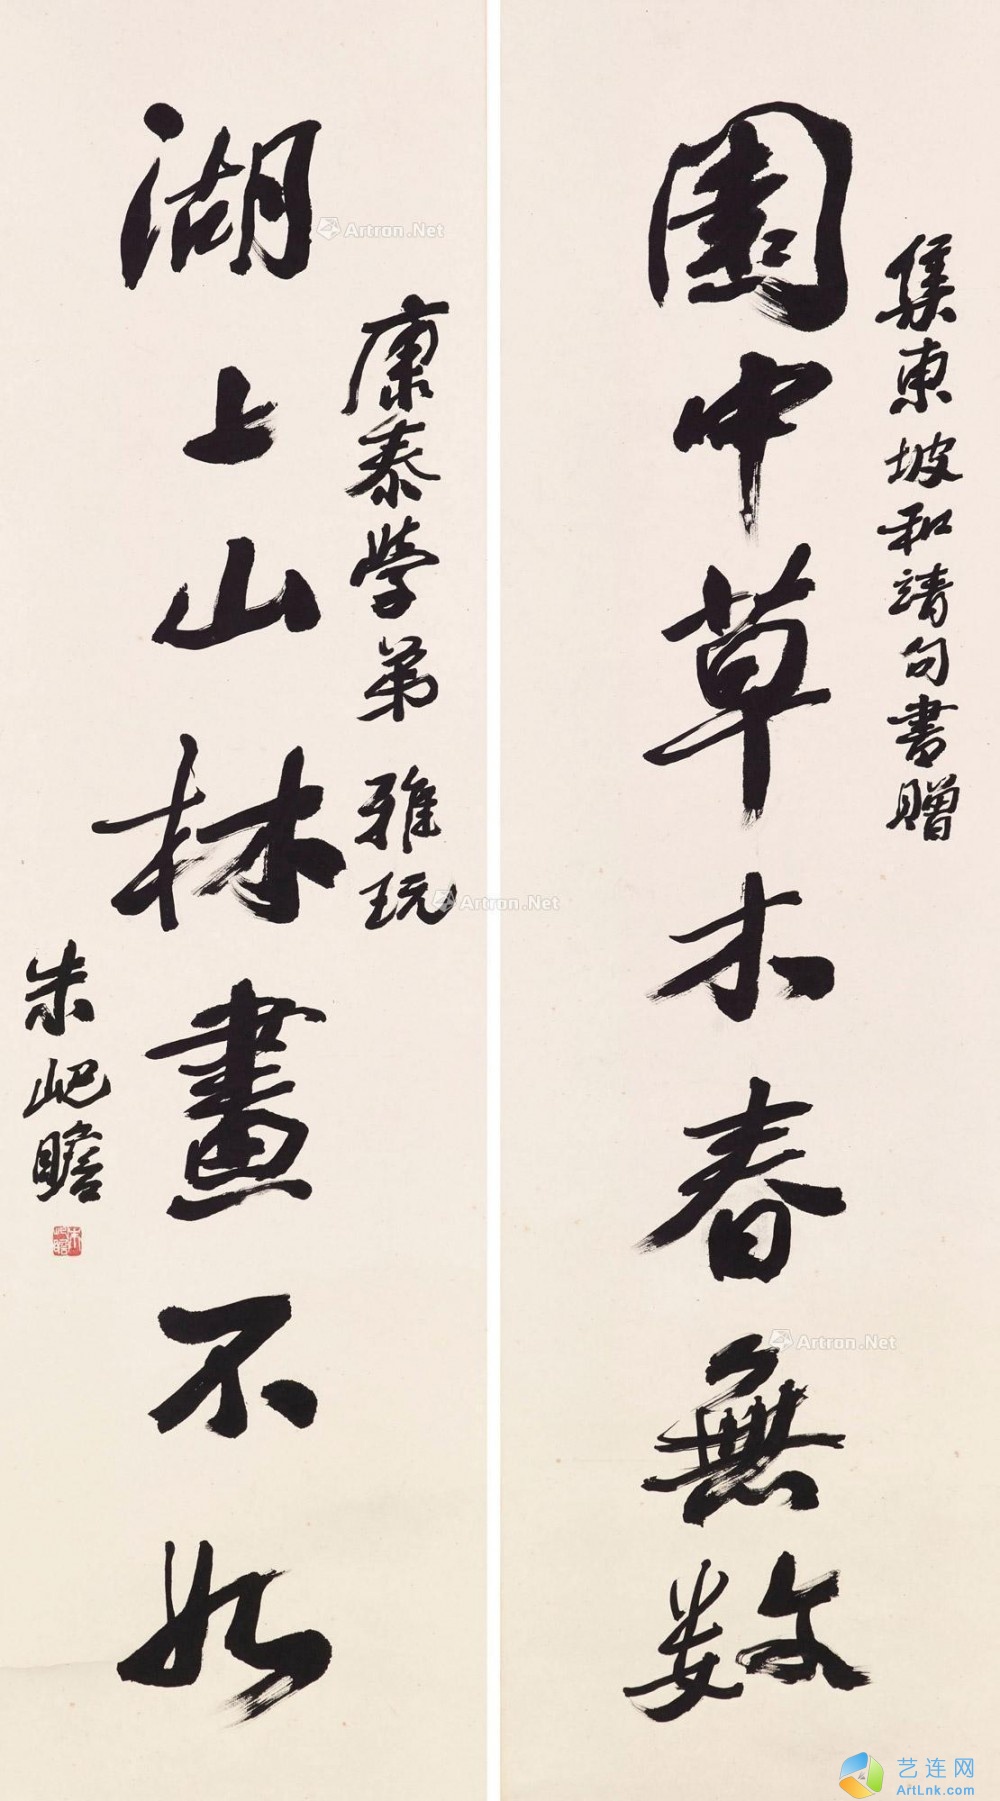 集東坡和靖句書贈
園中草木春無數
康泰學弟 雅玩
湖上山林畫不如
朱屺瞻
朱屺瞻
Artron.Net
Artron.Net
Artron.Net
艺连网
ArtLnk.com